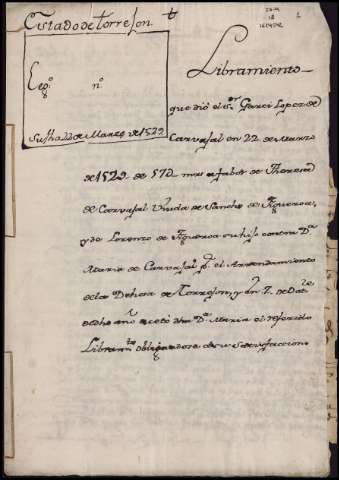 Estado de Torrejon. t
Leg.º n.º
Su fha 22 de Marzo de 1522
Libramiento
que dió el s.or Garci Lopez de
Carvajal en 22 de Marzo
de 1522 de 570 mrs a fabor de Theresa
de Carvajal Viuda de Sancho de Figueroa,
y de Lorenzo de Figueroa su hijo contra D.ª
Maria de Carvajal p.r el Arrendamiento
de la Dehesa de Torrejon, y en 7 de Oct.re
de dho año aceto dha D.ª Maria el referido
Libram.to obligandose a su satisfaccion